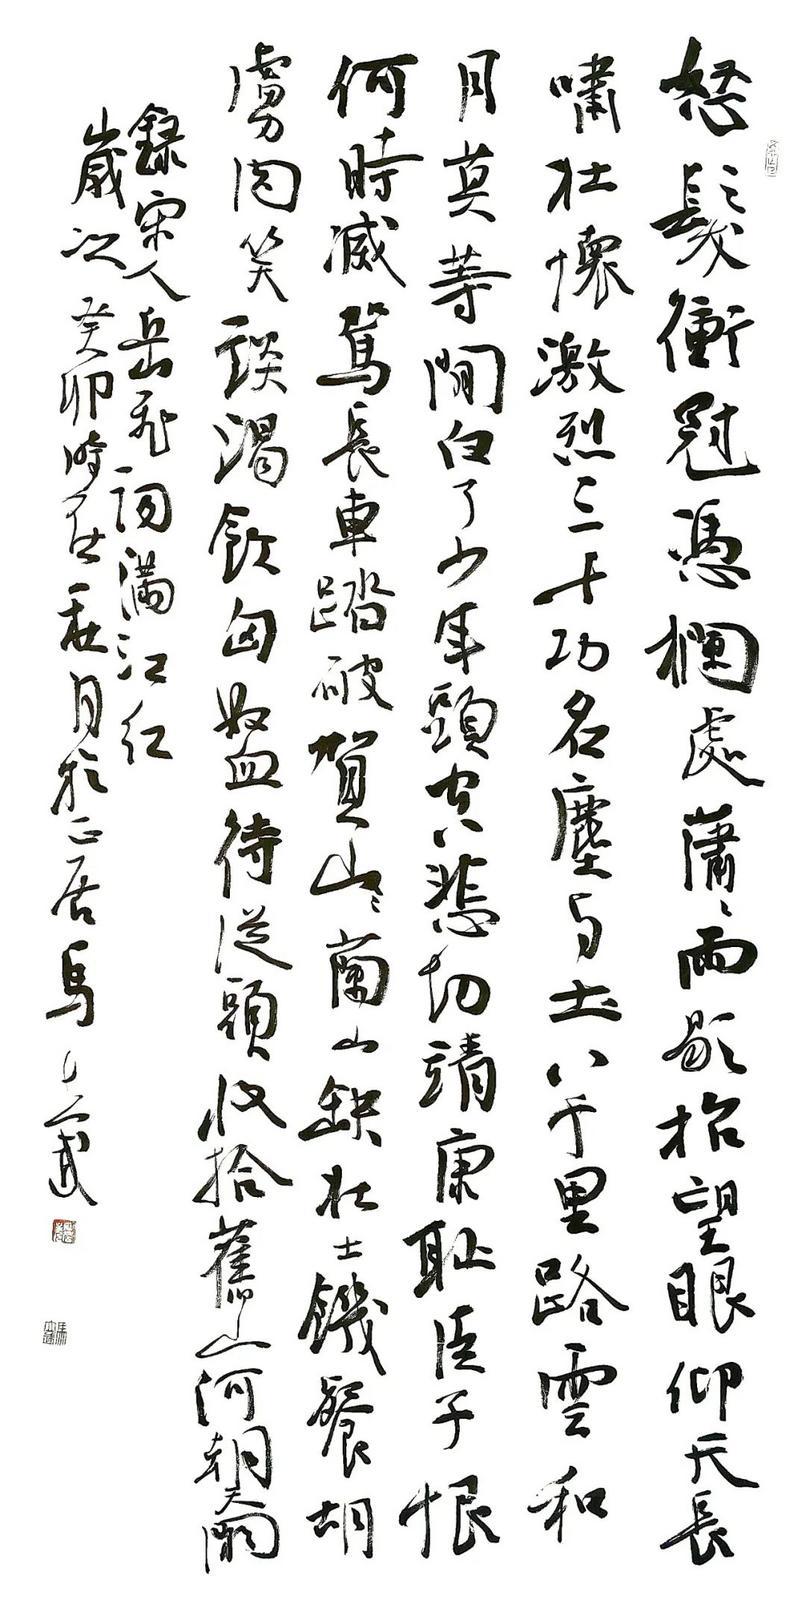 怒髮衝冠憑欄處蕭々雨歇抬望眼仰天長
嘯壯懷激烈三十功名塵与土八千里路雲和
月莫等閒白了少年頭空悲切靖康恥臣子恨
何時滅駕長車踏破賀山蘭山缺壯士饑餐胡
虜肉笑談渴飲匈奴血待從頭收拾舊山河朝天闕
錄宋人岳飛詞滿江紅
歲次癸卯時在月於居馬